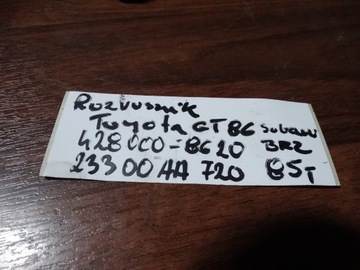 Rozrusznik
Toyota GT86 Subaru
428000-8620 BRZ
23300AA720 85,-